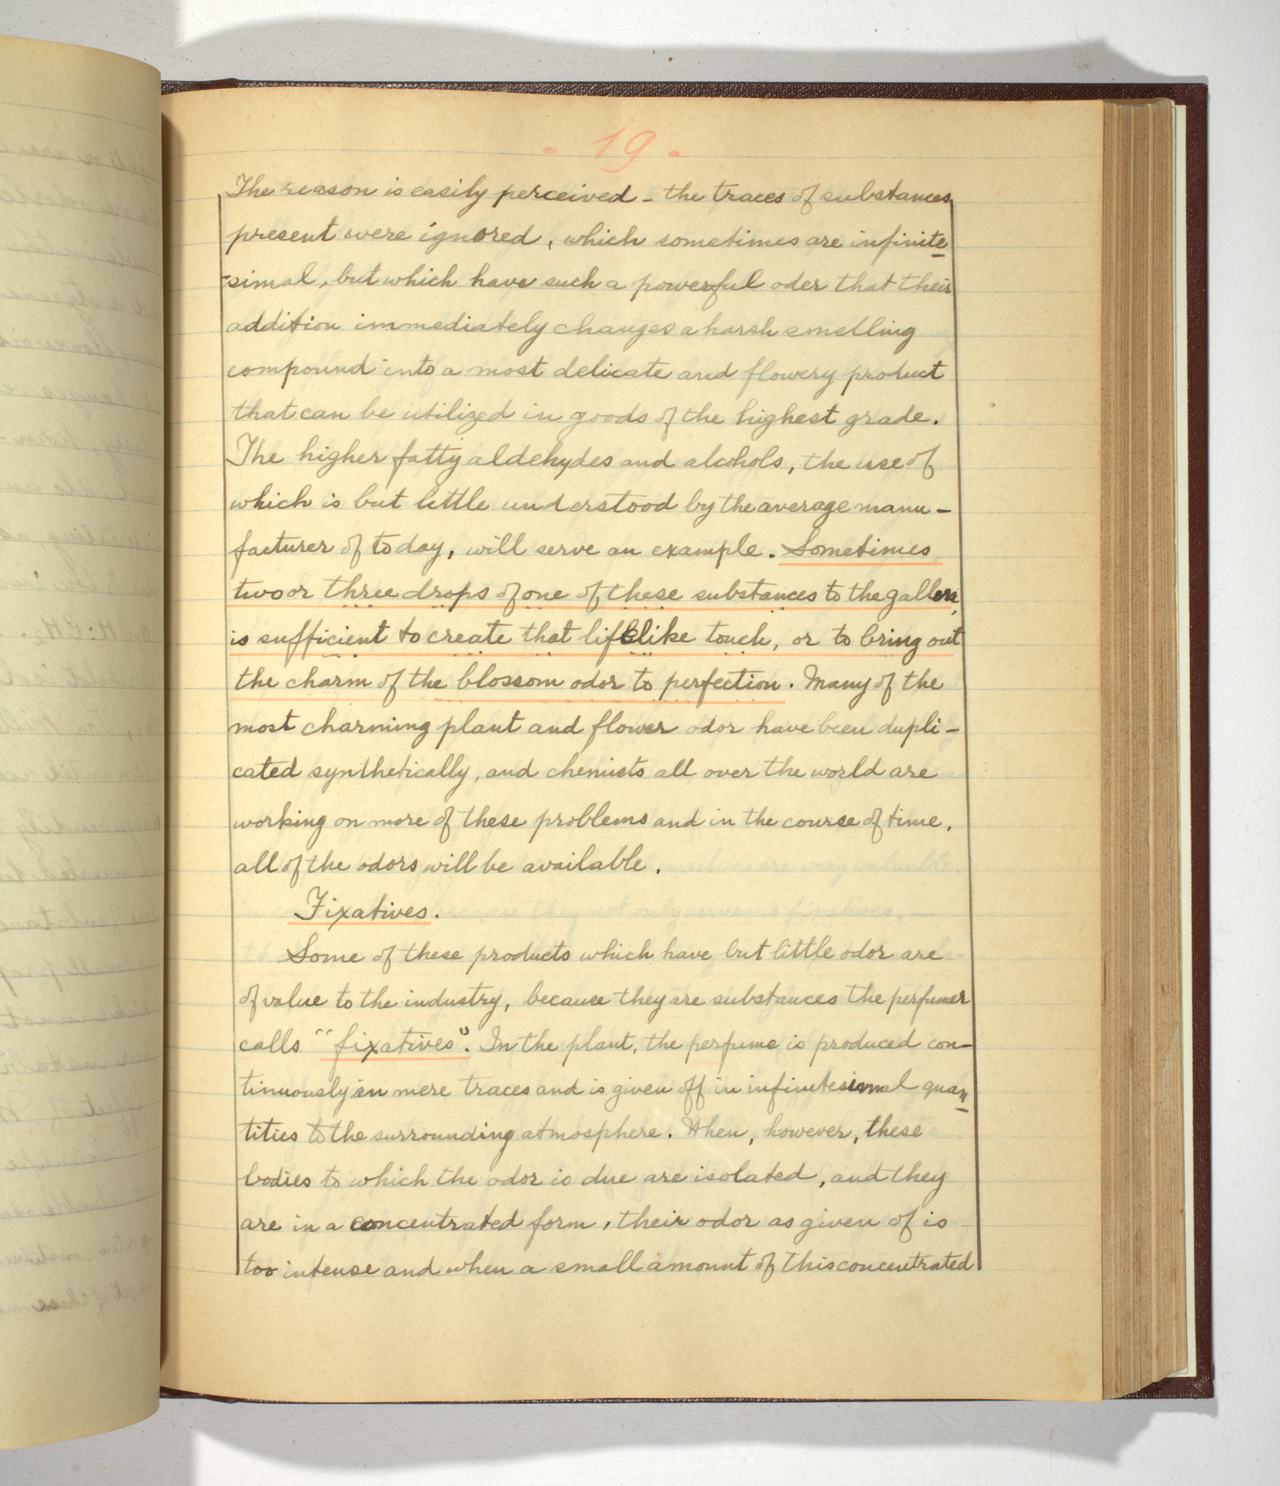 - 19 -
The reason is easily perceived - the traces of substances
present were ignored, which sometimes are infinite
-simal, but which have such a powerful oder that their
addition immediately changes a harsh smelling
compound into a most delicate and flowery product
that can be utilized in goods of the highest grade.
The higher fatty aldehydes and alcohols, the use of
which is but little understood by the average manu -
facturer of today, will serve an example. Sometimes
two or three drops of one of these substances to the gallon,
is sufficient to create that lifelike touch, or to bring out
the charm of the blossom odor to perfection. Many of the
most charming plant and flower odor have been dupli -
cated synthetically, and chemists all over the world are
working on more of these problems and in the course of time,
all of the odors will be available.
Fixatives.
Some of these products which have but little odor are
of value to the industry, because they are substances the perfumer
calls "fixatives". In the plant, the perfume is produced con-
tinuously in mere traces and is given off in infinitesimal quan-
tities to the surrounding atmosphere. When, however, these
bodies to which the odor is due are isolated, and they
are in a concentrated form, their odor as given of is
too intense and when a small amount of this concentrated